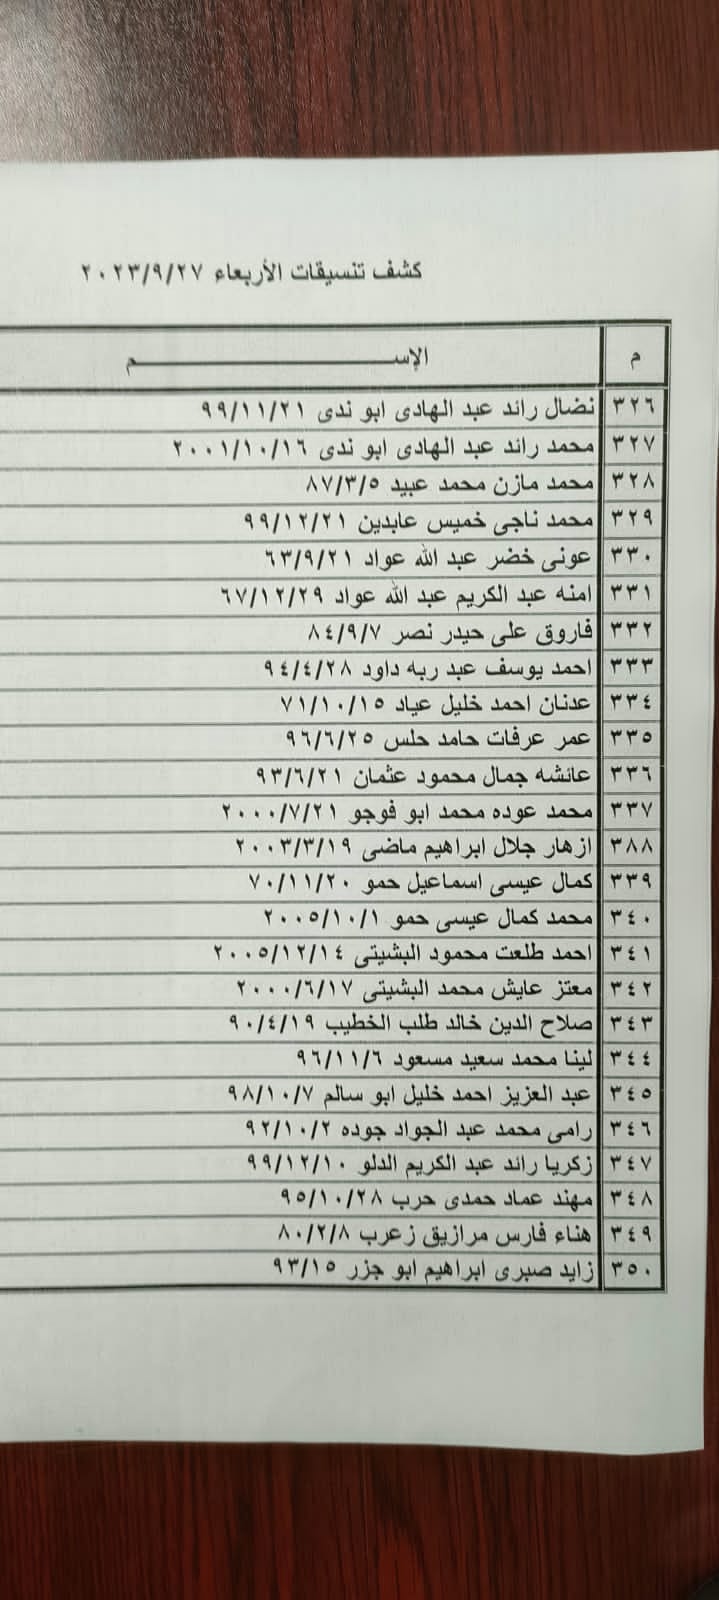 كشف تنسيقات الأربعاء ٢٠٢٣/٩/٢٧
م الإســـــــــــــم
٣٢٦ نضال رائد عبد الهادى ابو ندى ٩٩/١١/٢١
٣٢٧ محمد رائد عبد الهادى ابو ندى ٢٠٠١/١٠/١٦
٣٢٨ محمد مازن محمد عبيد ٨٧/٣/٥
٣٢٩ محمد ناجى خميس عابدين ٩٩/١٢/٢١
٣٣٠ عونى خضر عبد الله عواد ٦٣/٩/٢١
٣٣١ امنه عبد الكريم عبد الله عواد ٦٧/١٢/٢٩
٣٣٢ فاروق على حيدر نصر ٨٤/٩/٧
٣٣٣ احمد يوسف عبد ربه داود ٩٤/٤/٢٨
٣٣٤ عدنان احمد خليل عياد ٧١/١٠/١٥
٣٣٥ عمر عرفات حامد حلس ٩٦/٦/٢٥
٣٣٦ عائشه جمال محمود عثمان ٩٣/٦/٢١
٣٣٧ محمد عوده محمد ابو فوجو ٢٠٠٠/٧/٢١
٣٨٨ ازهار جلال ابراهيم ماضى ٢٠٠٣/٣/١٩
٣٣٩ كمال عيسى اسماعيل حمو ٧٠/١١/٢٠
٣٤٠ محمد كمال عيسى حمو ٢٠٠٥/١٠/١
٣٤١ احمد طلعت محمود البشيتى ٢٠٠٥/١٢/١٤
٣٤٢ معتز عايش محمد البشيتى ٢٠٠٠/٦/١٧
٣٤٣ صلاح الدين خالد طلب الخطيب ٩٠/٤/١٩
٣٤٤ لينا محمد سعيد مسعود ٩٦/١١/٦
٣٤٥ عبد العزيز احمد خليل ابو سالم ٩٨/١٠/٧
٣٤٦ رامى محمد عبد الجواد جوده ٩٢/١٠/٢
٣٤٧ زكريا رائد عبد الكريم الدلو ٩٩/١٢/١٠
٣٤٨ مهند عماد حمدى حرب ٩٥/١٠/٢٨
٣٤٩ هناء فارس مرازيق زعرب ٨٠/٢/٨
٣٥٠ زايد صبرى ابراهيم ابو جزر ٩٣/١٥